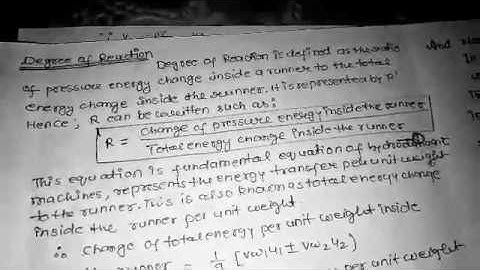 Degree of Reaction
Degree of Reaction is defined as the ratio
of pressure energy change inside a runner to the total
energy change inside the runner. It is represented by 'R'
Hence; R can be written such as;
R = Change of pressure energy inside the runner
Total energy change inside the runner
This equation is fundamental equation of hydrodynamic
machines, represents the energy transfer per unit weight
to the runner. This is also known as total energy change
inside the runner per unit weight.
∴ Change of total energy per unit weight inside
runner = 1/g [Vw1u1 ± Vw2u2]
per unit weight
And